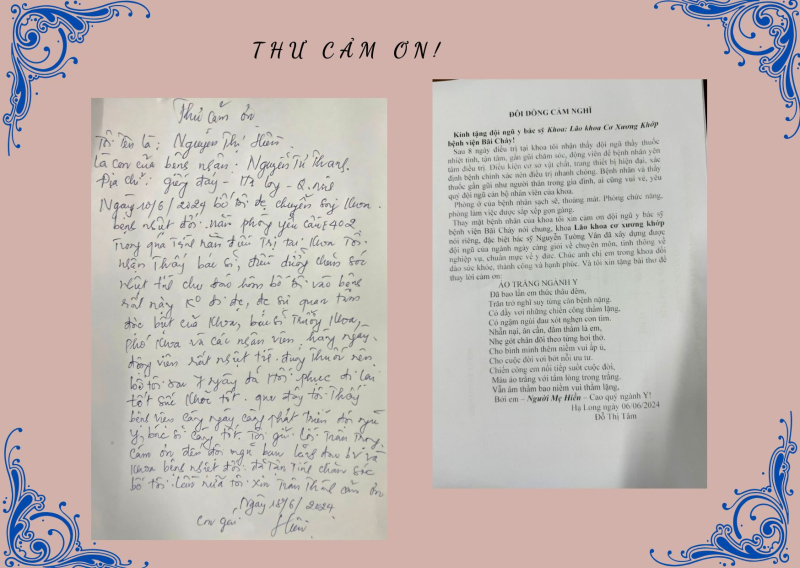 THƯ CẢM ƠN!
Thư cảm ơn
Tôi tên là: Nguyễn Thị Hiền
Là con của bệnh nhân: Nguyễn Tú Thanh
Địa chỉ: giếng đáy - Hạ Long - Q. Ninh
Ngày 10/6/2024 bố tôi đc chuyển sang khoa
bệnh nhiệt đới. nằm phòng yêu cầu E402
Trong quá trình nằm điều trị tại khoa Tôi
nhận thấy bác sĩ, điều dưỡng chăm sóc
nhiệt tình chu đáo hôm bố tôi vào bệnh
rất nặng K° đi đc, đc sự quan tâm
đặc biệt của khoa, bác sĩ trưởng khoa,
phó khoa và các nhân viên, hàng ngày
động viên rất nhiệt tình. dùng thuốc nên
bố tôi sau 7 ngày đã hồi phục đi lại
tốt sức khoẻ tốt. qua đây tôi thấy
bệnh viện càng ngày càng phát triển đội ngũ
y, bác sĩ càng tốt. Tôi gửi lời trân trọng
cảm ơn đến đội ngũ ban lãnh đạo BV và
khoa bệnh nhiệt đới. đã tận tình chăm sóc
bố tôi. lần nữa tôi xin trân thành cảm ơn
Ngày 18/6/2024
con gái Hiền
ĐÔI DÒNG CẢM NGHĨ
Kính tặng đội ngũ y bác sỹ Khoa: Lão khoa Cơ Xương Khớp
bệnh viện Bãi Cháy!
Sau 8 ngày điều trị tại khoa tôi nhận thấy đội ngũ thầy thuốc
nhiệt tình, tận tâm, gần gũi chăm sóc, động viên để bệnh nhân yên
tâm điều trị. Điều kiện cơ sở vật chất, trang thiết bị hiện đại, xác
định bệnh chính xác nên điều trị nhanh chóng. Bệnh nhân và thầy
thuốc gần gũi như người thân trong gia đình, ai cũng vui vẻ, yêu
quý đội ngũ cán bộ nhân viên của khoa.
Phòng ở của bệnh nhân sạch sẽ, thoáng mát. Phòng chức năng,
phòng làm việc được sắp xếp gọn gàng.
Thay mặt bệnh nhân của khoa tôi xin cảm ơn đội ngũ y bác sỹ
bệnh viện Bãi Cháy nói chung, khoa Lão khoa cơ xương khớp
nói riêng, đặc biệt bác sỹ Nguyễn Tường Vân đã xây dựng được
đội ngũ của ngành ngày càng giỏi về chuyên môn, tinh thông về
nghiệp vụ, chuẩn mực về y đức. Chúc anh chị em trong khoa dồi
dào sức khỏe, thành công và hạnh phúc. Và tôi xin tặng bài thơ để
thay lời cảm ơn:
ÁO TRẮNG NGÀNH Y
Đã bao lần em thức thâu đêm,
Trăn trở nghĩ suy từng căn bệnh nặng.
Có đầy vơi những chiến công thầm lặng,
Có ngậm ngùi đau xót nghẹn con tim.
Nhẫn nại, ân cần, đằm thắm là em,
Nhẹ gót chân đôi theo từng hơi thở.
Cho bình minh thêm niềm vui ấp ủ,
Cho cuộc đời vơi bớt nỗi ưu tư.
Chiến công em nối tiếp suốt cuộc đời,
Màu áo trắng với tấm lòng trong trắng,
Vẫn âm thầm bao niềm vui thầm lặng,
Bởi em – Người Mẹ Hiền – Cao quý ngành Y!
Hạ Long ngày 06/06/2024
Đỗ Thị Tâm